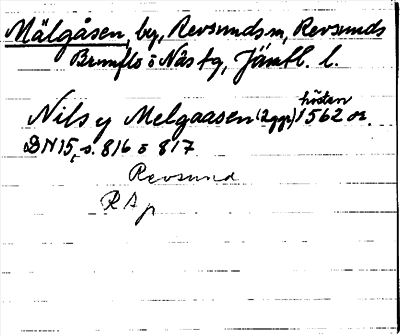 Mälgåsen, by, Revsunds sn, Revsunds
Brunflo o Näs tg, Jämtl. l.
hösten
Nils y Melgaasen (2ggr) 1562 or.
DN 15, s. 816 o 817
Revsund
R A p